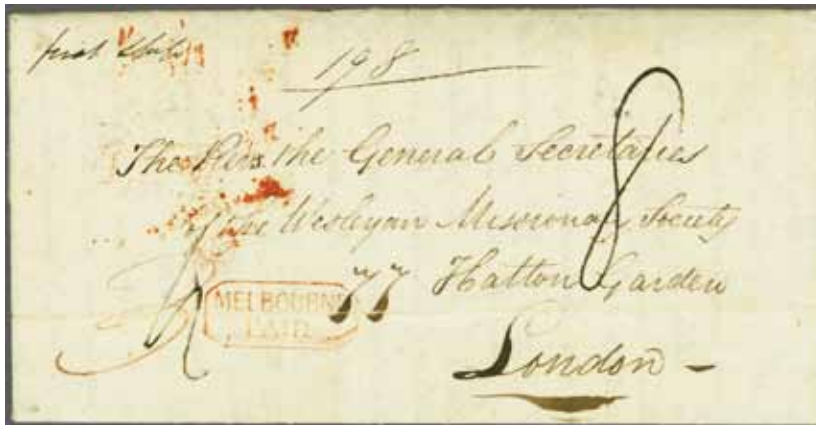 198
The Revs. the General Secretaries
of the Wesleyan Missionary Society
77 Hatton Garden
MELBOURNE
PAID
London
8